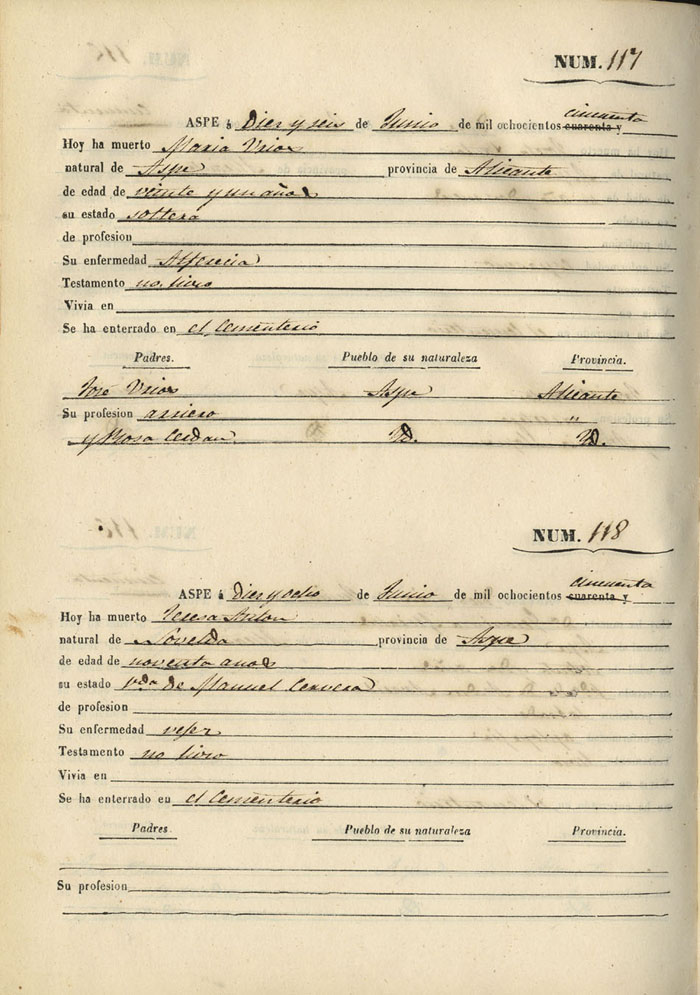 NUM. 117
cincuenta
ASPE á Diez y seis de Junio de mil ochocientos cuarenta y
Hoy ha muerto Maria Vrios
natural de Aspe provincia de Alicante
de edad de veinte y un años
su estado soltera
de profesion
Su enfermedad Alferecia
Testamento no hizo
Vivia en
Se ha enterrado en el Cementerio
Padres. Pueblo de su naturaleza Provincia.
José Vrios Aspe Alicante
Su profesion arriero "
y Rosa Cerdan Yd. Yd.
NUM. 118
cincuenta
ASPE á Diez y ocho de Junio de mil ochocientos cuarenta y
Hoy ha muerto Teresa Anton
natural de Novelda provincia de Aspe
de edad de noventa años
su estado vda de Manuel Cervera
de profesion
Su enfermedad vejez
Testamento no hizo
Vivia en
Se ha enterrado en el Cementerio
Padres. Pueblo de su naturaleza Provincia.
Su profesion